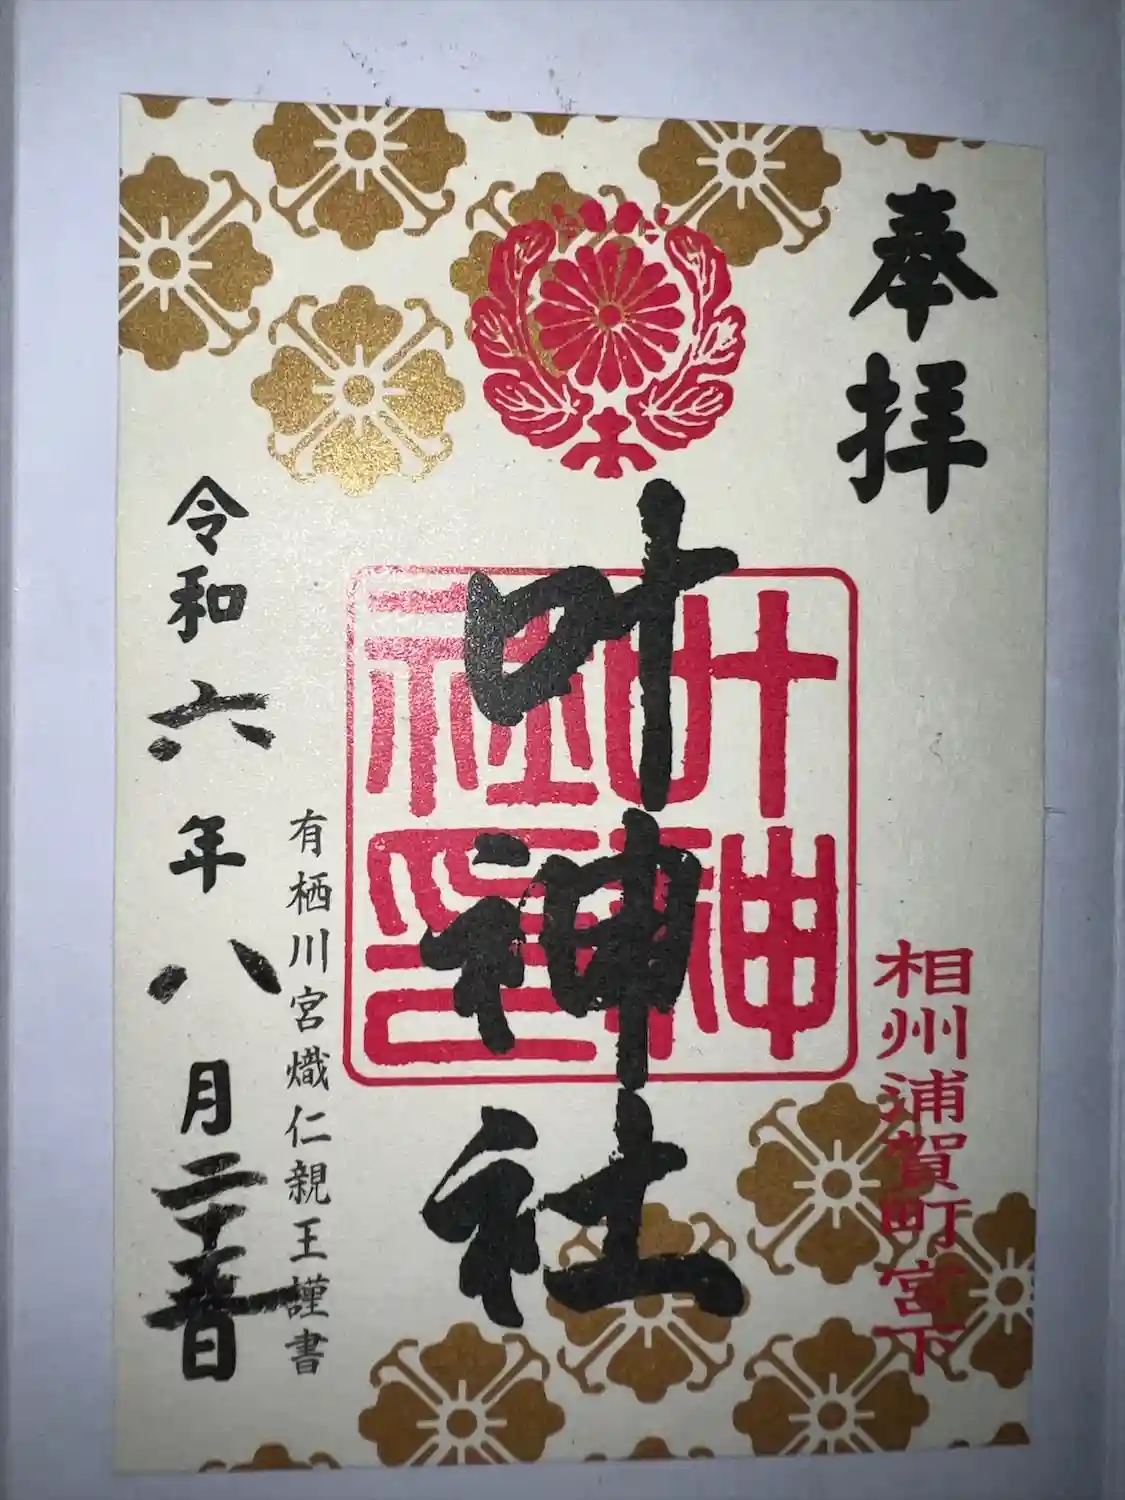 奉拝
相州浦賀町宮下
叶神社
叶神
社印
有栖川宮熾仁親王謹書
令和六年八月二十五日